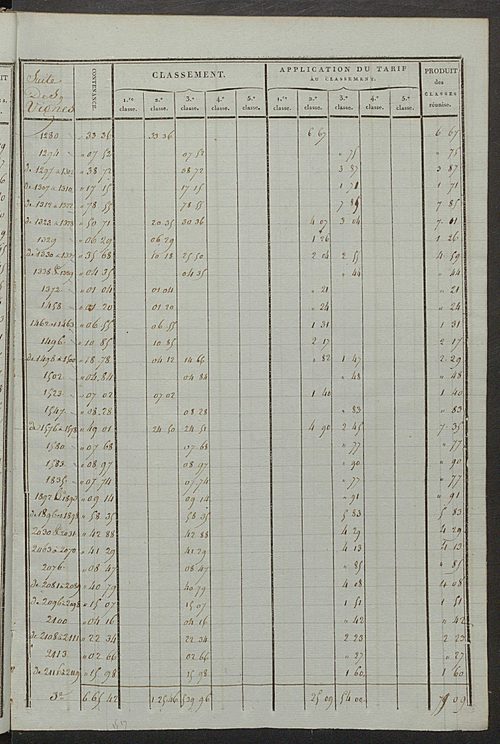 Suite
Des
Vignes
CONTENANCE.
CLASSEMENT.
APPLICATION DU TARIF
AU CLASSEMENT.
PRODUIT
des
CLASSES
réunies.
1.re classe. 2.e classe. 3.e classe. 4.e classe. 5.e classe. 1.re classe. 2.e classe. 3.e classe. 4.e classe. 5.e classe.
1280 " 33 36 33 36 6 67 6 67
1294 " 07 52 07 52 " 75 " 75
" 38 72 38 72 3 87 3 87
de 1307 à 1310 " 17 15 17 15 1 71 1 71
" 78 55 78 55 7 85 7 85
" 50 71 20 35 30 36 4 07 3 04 7 11
1329 " 06 29 06 29 1 26 1 26
" 35 68 10 18 25 50 2 04 2 55 4 59
" 04 35 04 35 " 44 " 44
1372 " 01 04 01 04 " 21 " 21
1458 " 01 20 01 20 " 24 " 24
1462 et 1463 " 06 55 06 55 1 31 1 31
1496 " 10 85 10 85 2 17 2 17
" 18 78 04 12 14 65 " 82 1 47 2 29
1502 " 04 84 04 84 " 48 " 48
1523 " 07 02 07 02 1 40 1 40
1547 " 08 28 08 28 " 83 " 83
" 49 01 24 50 24 51 4 90 2 45 7 35
1580 " 07 68 07 68 " 77 " 77
1583 " 08 97 08 97 " 90 " 90
1835 " 07 74 07 74 " 77 " 77
" 09 14 09 14 " 91 " 91
de 1896 à 1898 " 58 35 58 35 5 83 5 83
" 42 88 42 88 4 29 4 29
" 41 29 41 29 4 13 4 13
2076 " 08 47 08 47 " 85 " 85
de 2081 à 2089 " 40 79 40 79 4 08 4 08
de 2096 à 2098 " 15 07 15 07 1 51 1 51
2100 " 04 16 04 16 " 42 " 42
de 2108 à 2111 " 22 34 22 34 2 23 2 23
2113 " 02 66 02 66 " 27 " 27
de 2116 à 2119 " 15 98 15 98 1 60 1 60
6 65 42 1 25 46 5 39 96 25 09 54 00 79 09